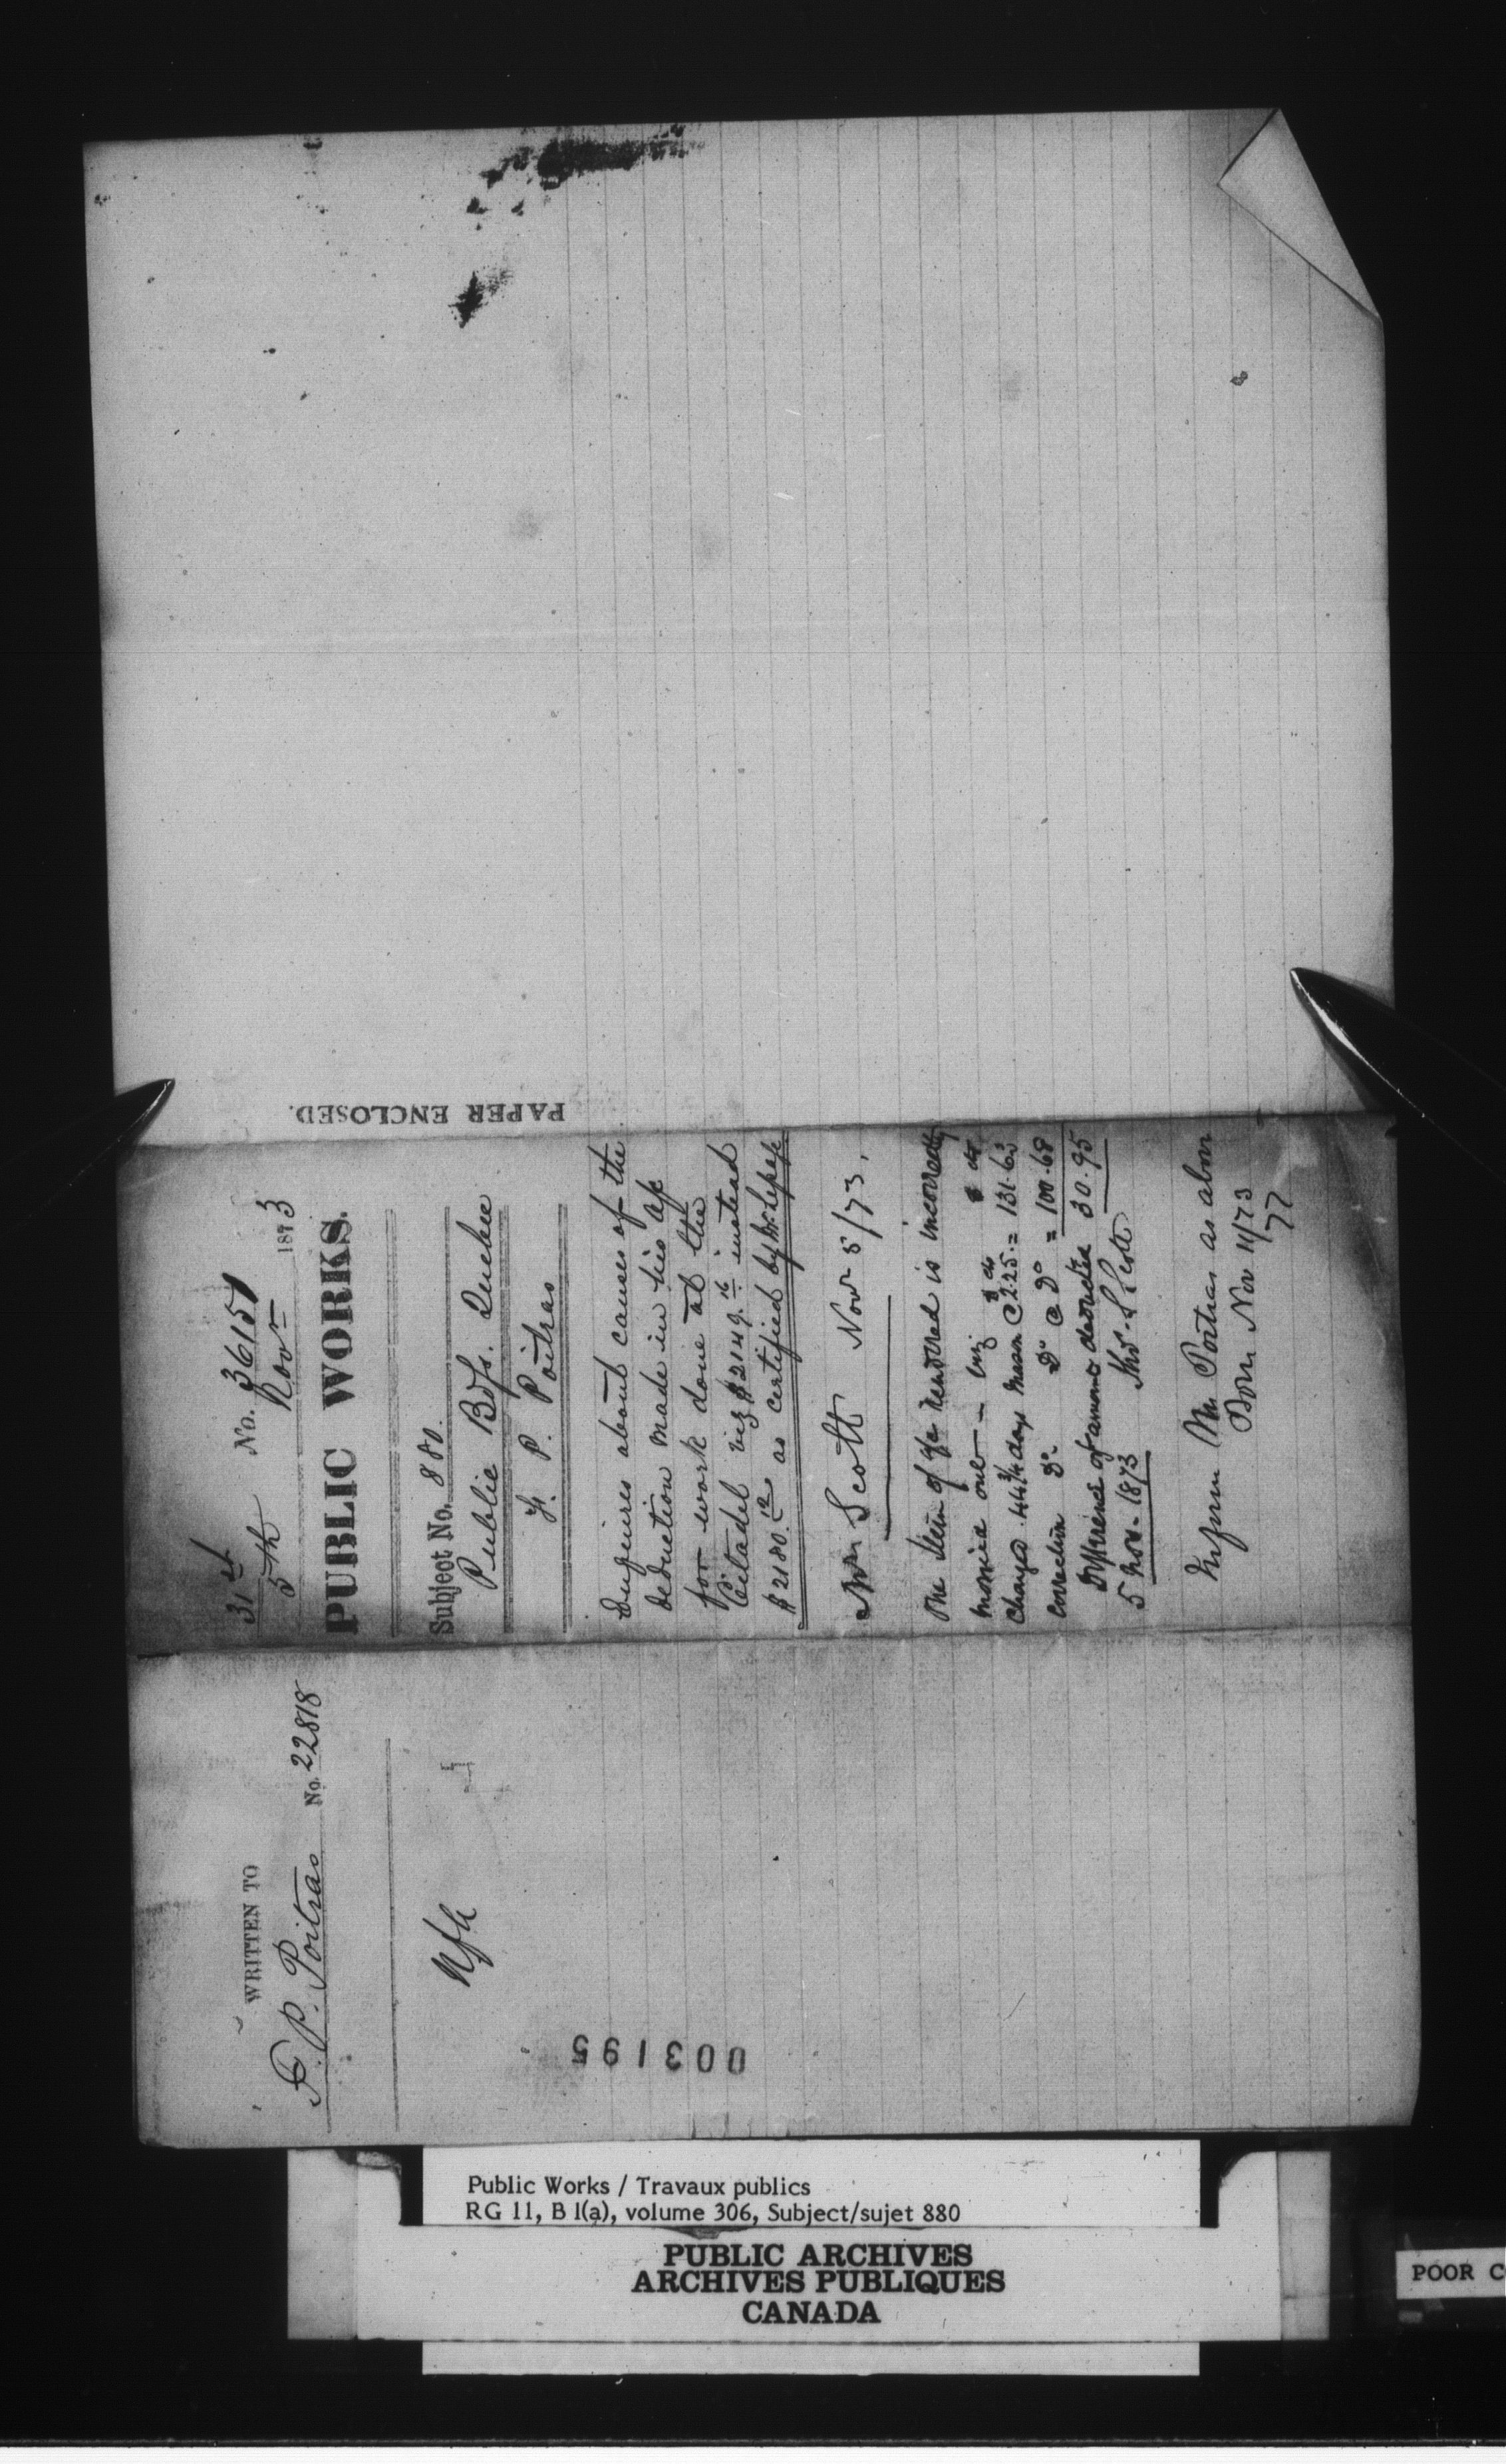 WRITTEN TO
F. P. Poitras No. 22818
003195
31st No. 36151
5th Novr 1873
PUBLIC WORKS.
Subject No. 880.
Public Bdgs. Quebec
F. P. Poitras
Inquires about causes of the
deduction made in his a/c
for work done at the
Citadel viz $2149.16 instead
$2180.12 as certified by Mr. Lepage
Mr Scott Novr 5/73.
One item of a/c rendered is incorrectly
out — viz
charged 44 3/4 days mason @ 2.25 = 131.63
correction Do Do @ Do = 100.68
Difference of amount deducted 30.95
Thos. S Scott
5 Nov. 1873
Inform Mr Poitras as above
Done Nov 11/73
PAPER ENCLOSED.
Public Works / Travaux publics
RG 11, B 1(a), volume 306, Subject/sujet 880
PUBLIC ARCHIVES
ARCHIVES PUBLIQUES
CANADA
POOR